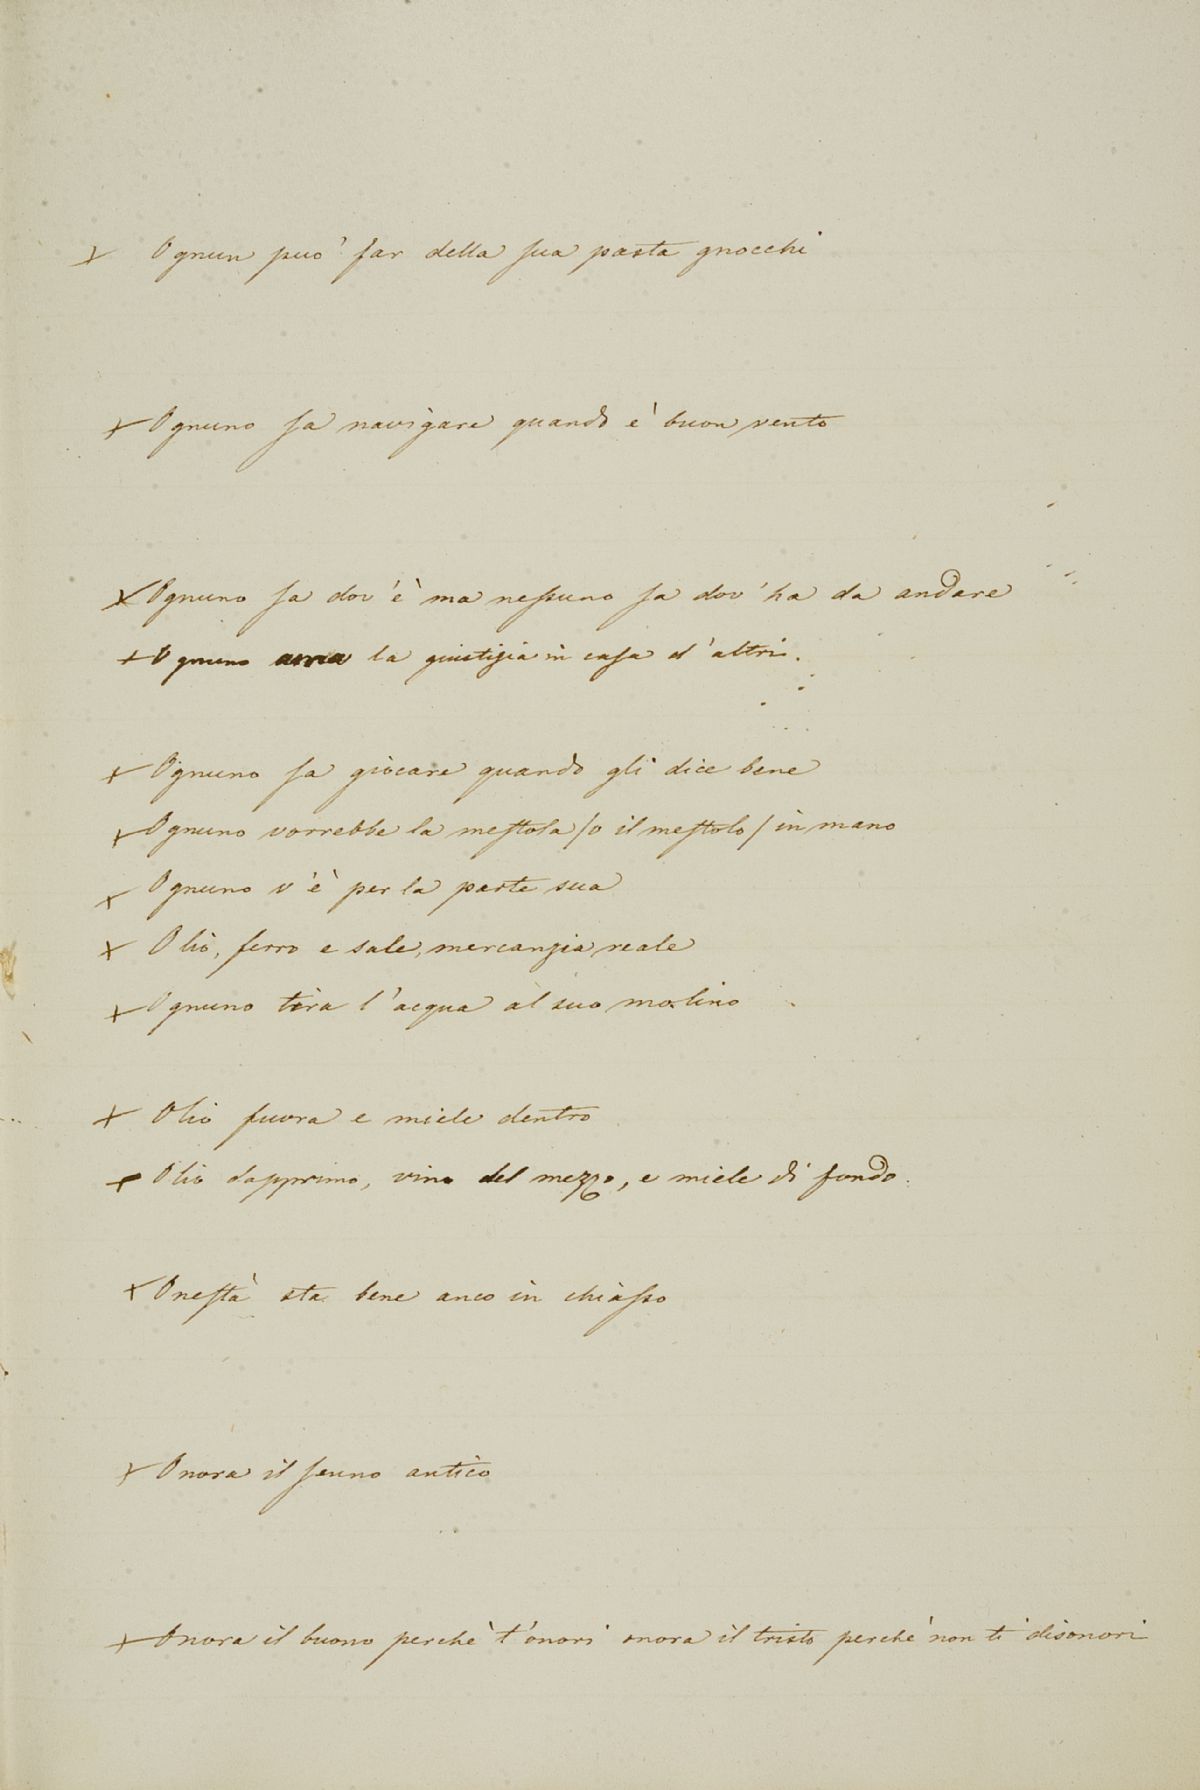 × Ognun può far della sua pasta gnocchi
× Ognuno sa navigare quando è buon vento
× Ognuno sa dov'è ma nessuno sa dov'ha da andare
× Ognuno ama la giustizia in casa d'altri.
× Ognuno sa giocare quando gli dice bene
× Ognuno vorrebbe la mestola /o il mestolo/ in mano
× Ognuno v'è per la parte sua
× Olio, ferro e sale, mercanzia reale
× Ognuno tira l'acqua al suo molino
× Olio fuora e miele dentro
× Olio dapprimo, vino del mezzo, e miele di fondo.
× Onestà sta bene anco in chiasso
× Onora il senno antico
× Onora il buono perchè t'onori onora il tristo perchè non ti disonori